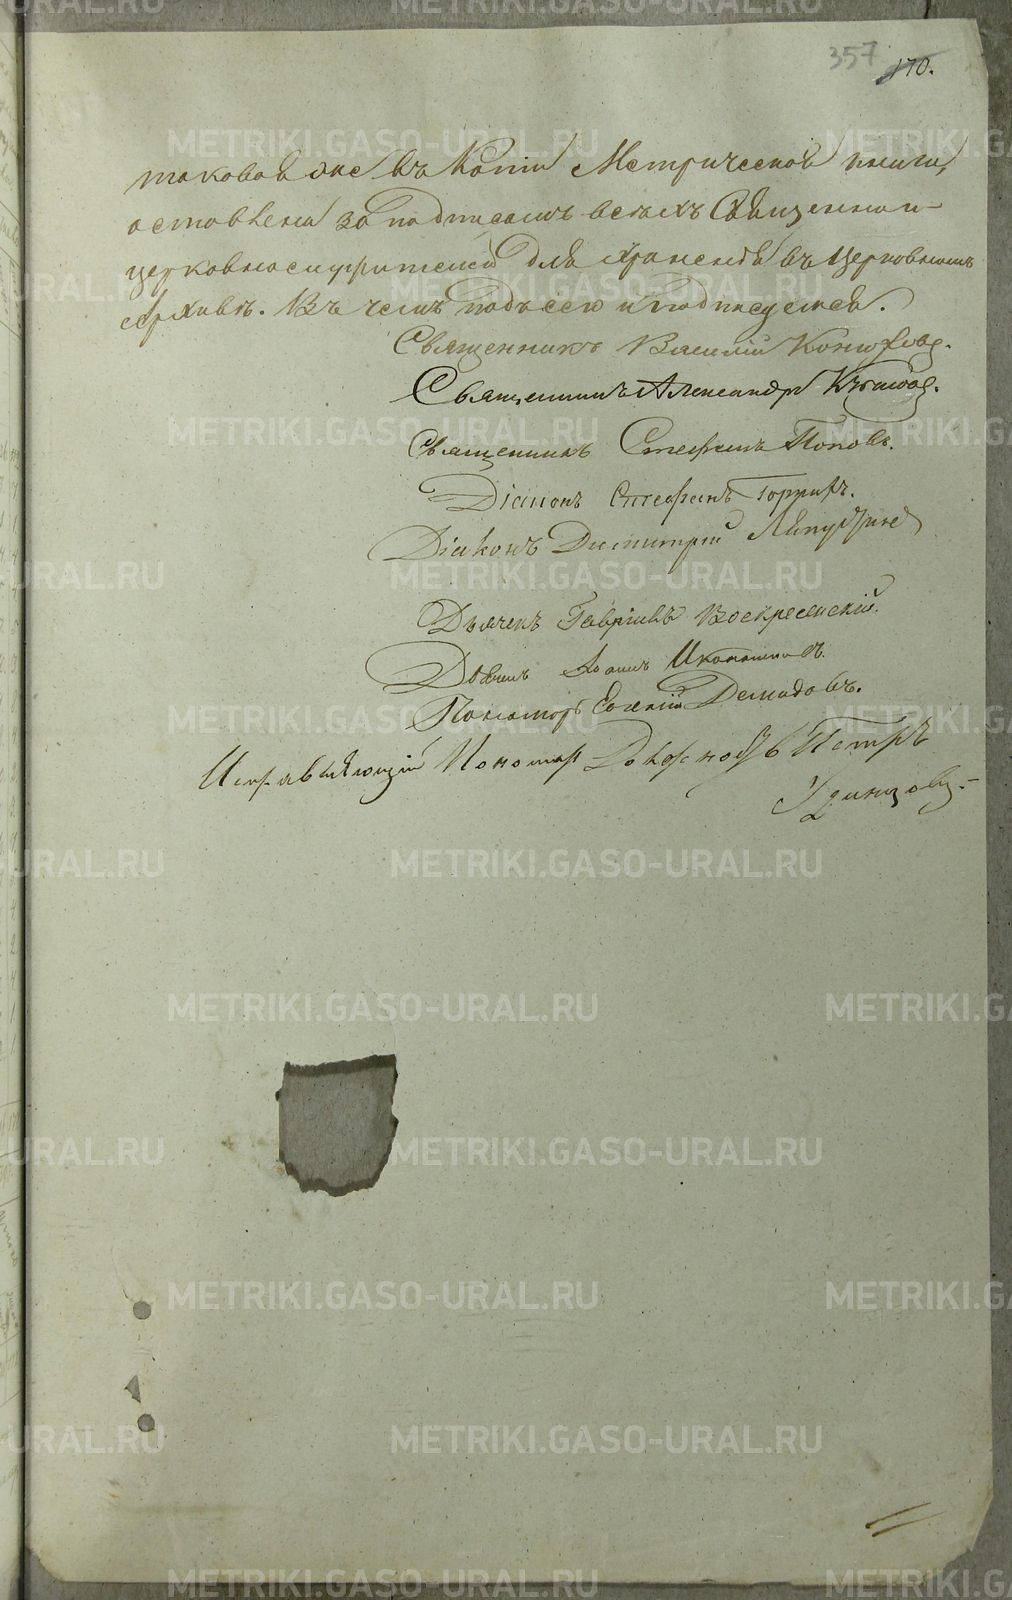 357 170.
таковая же въ копіи Метрической книги,
оставлена за подписомъ всѣхъ Священно и
церковнослужителей для храненія въ Церковномъ
Архивѣ. Въ чемъ подъ сею и подписуемся.
Священникъ Василій Конюховъ.
Священникъ Александръ
Священникъ Стефанъ Поповъ.
Діаконъ Стефанъ
Діаконъ Димитрій
Дьячекъ Гавріилъ Воскресенскій.
Іоаннъ Иконниковъ.
Пономарь Евгеній Демидовъ.
Исправляющій Пономар. Должность Петръ
Удинцовъ.
METRIKI.GASO-URAL.RU